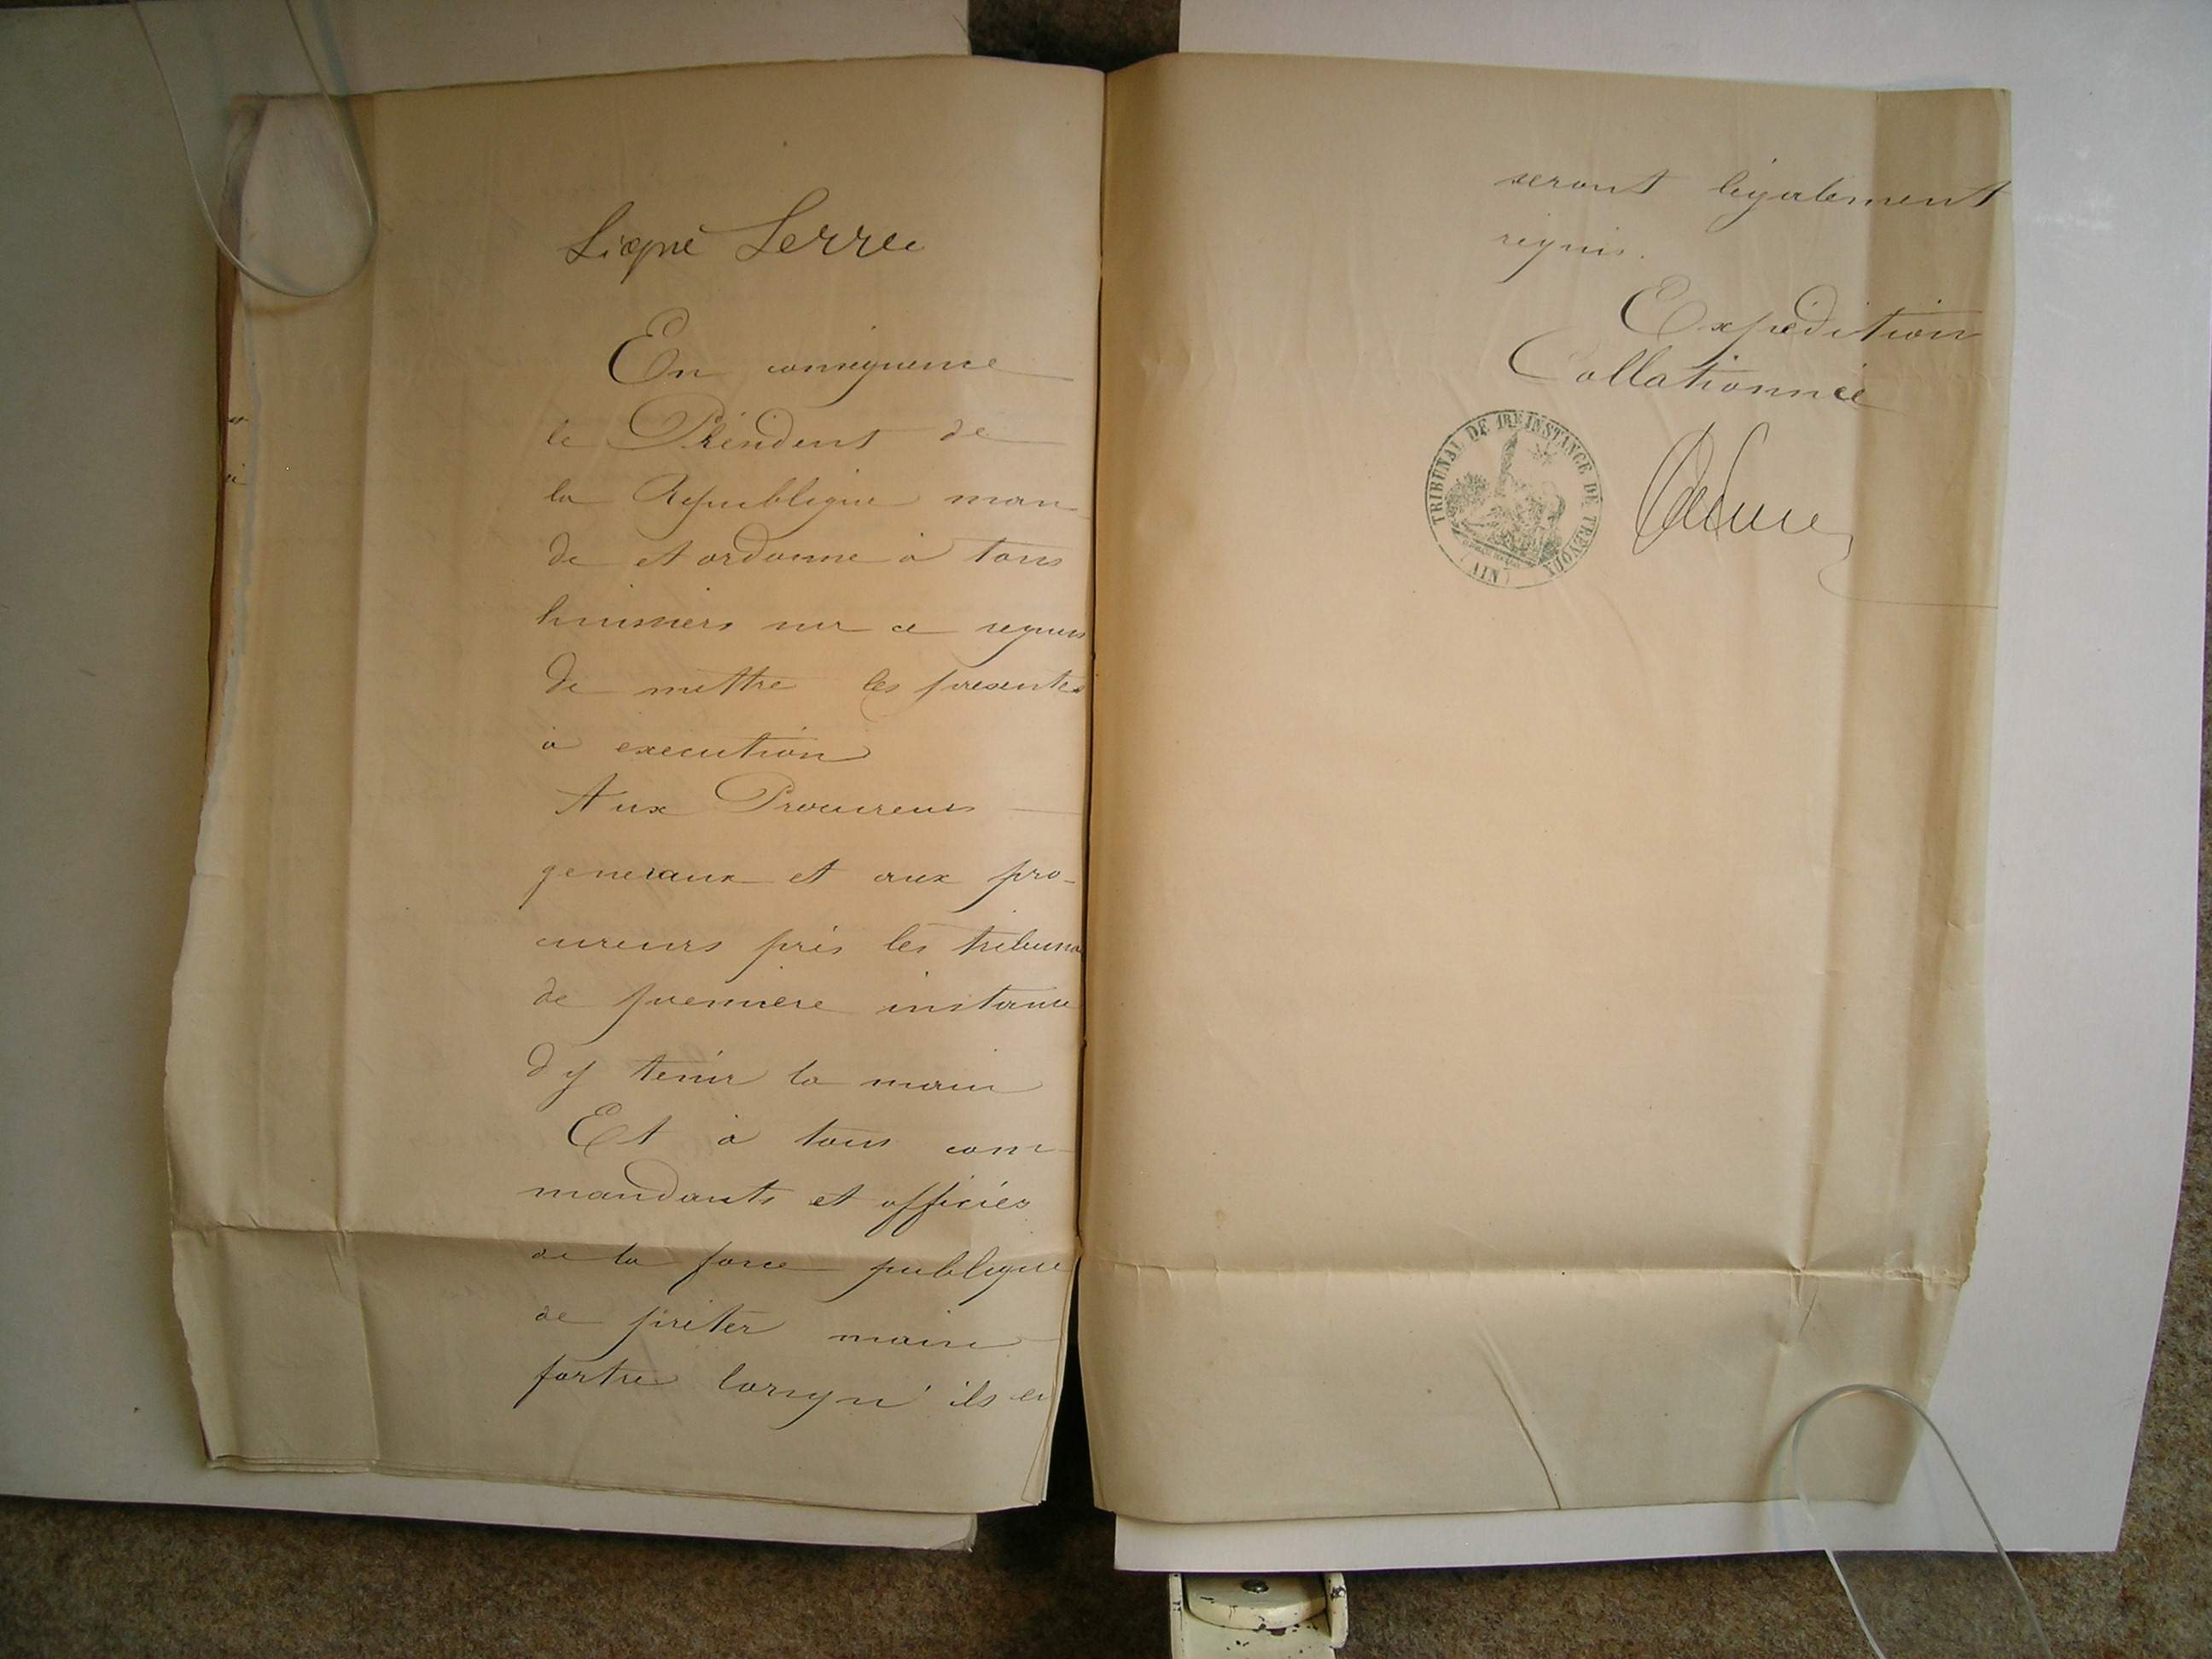 Signé Serre
En conséquence
le Président de
la République man
de et ordonne à tous
huissiers sur ce requis
de mettre les presentes
à execution
Aux Procureurs
generaux et aux pro-
cureurs près les tribuna
de premiere instance
d'y tenir la main
Et à tous com
mandants et officiers
de la force publique
de prêter main
forte lorsqu'ils en
seront légalement
requis.
Expédition
Collationnée
TRIBUNAL DE 1RE INSTANCE DE TREVOUX
(AIN)